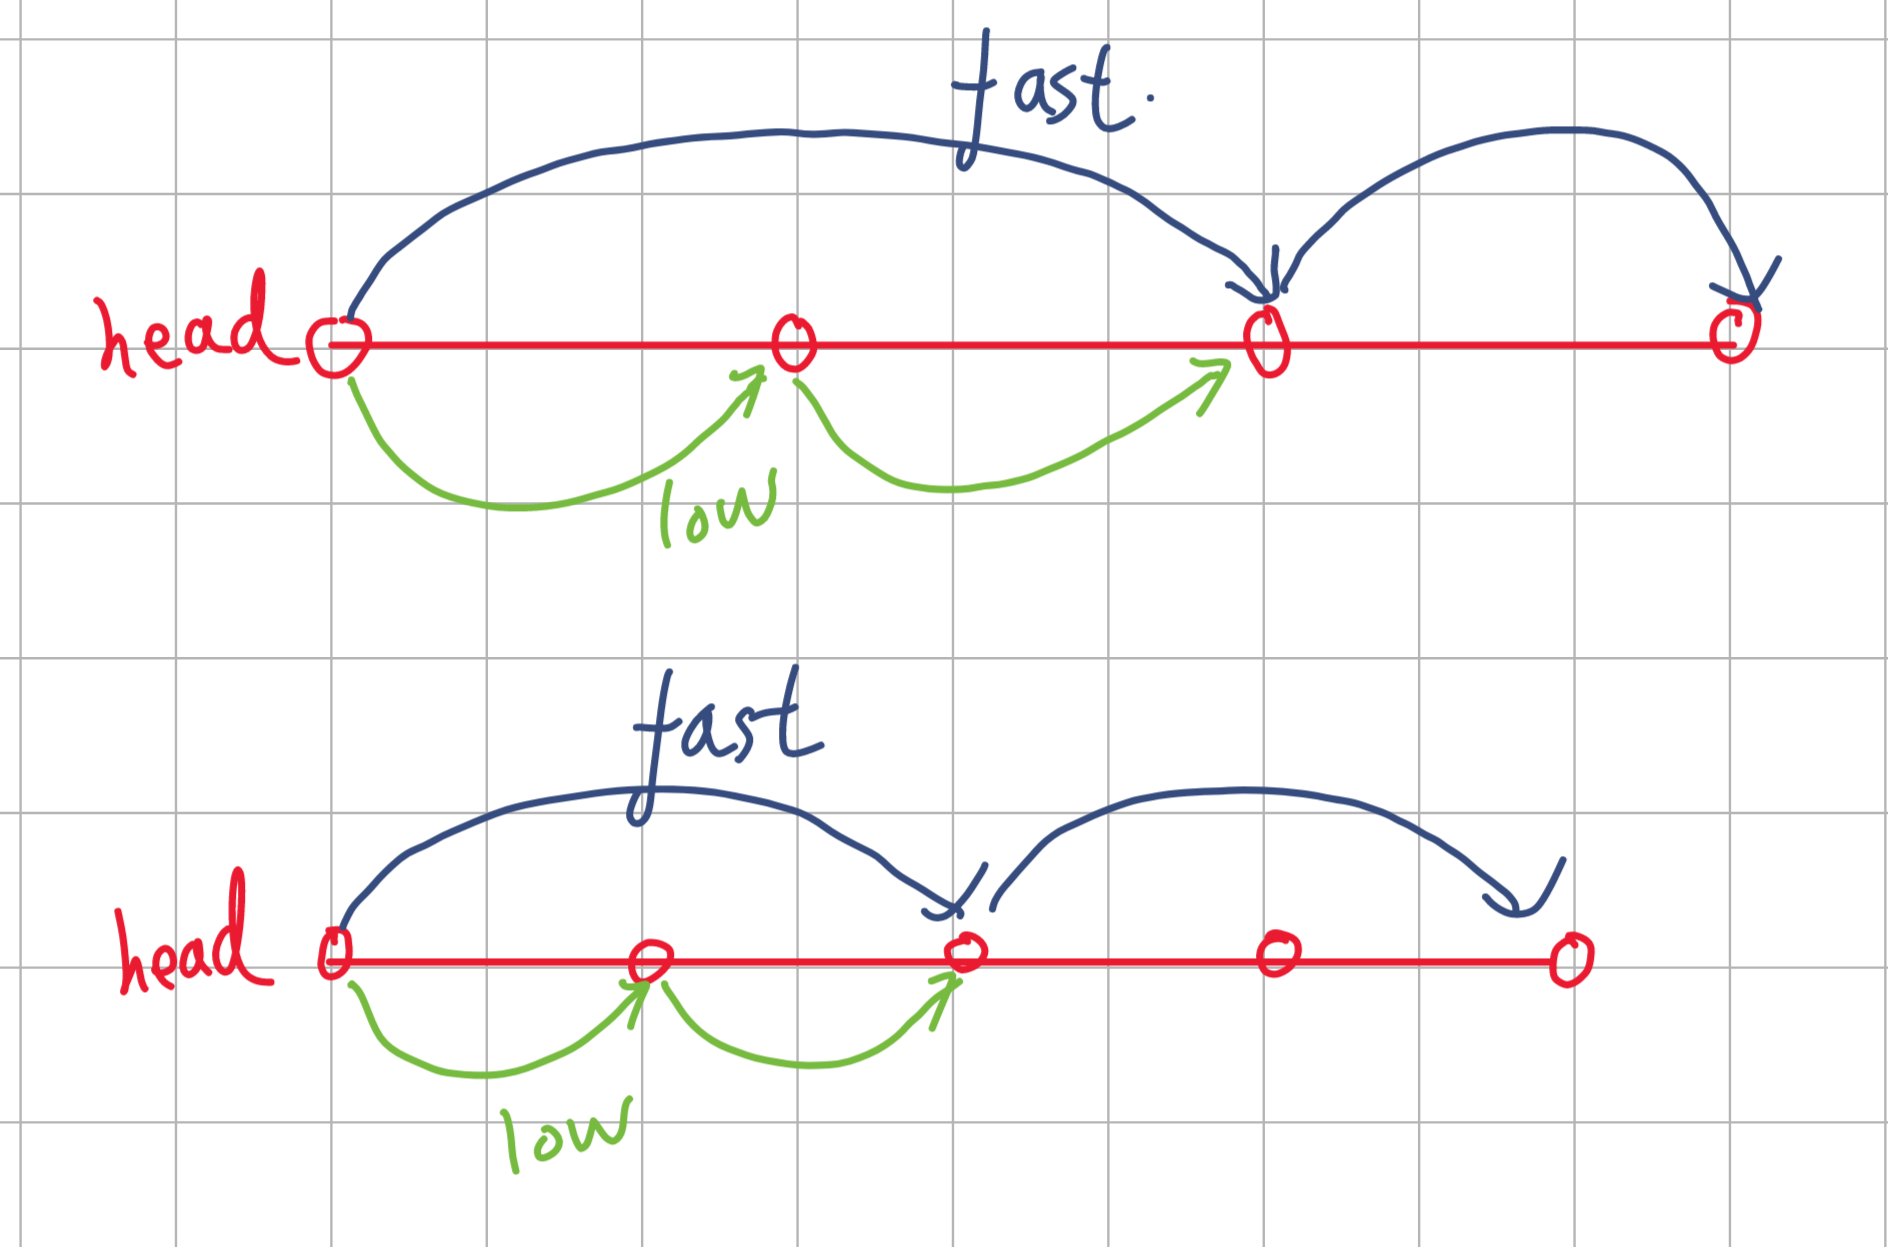 fast.
head
low
fast
head
low